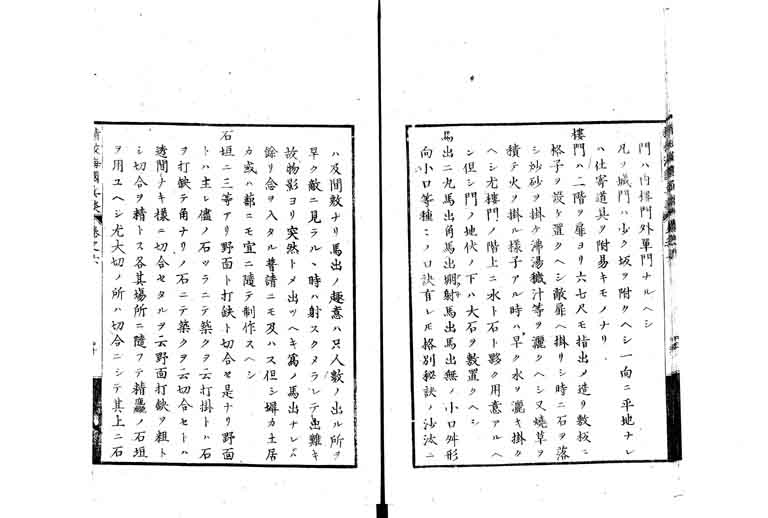 門ハ内樓門外單門ナルヘシ
凡ソ城門ハ少ク坂ヲ附クヘシ一向ニ平地ナレ
ハ仕寄道具ヲ附易キモノナリ
樓門ハ二階ヲ扉ヨリ六七尺モ指出メ造リ敷板ニ
格子ヲ設ケ置クヘシ敵扉ヘ掛リシ時ニ石ヲ落
シ炒砂ヲ掛ケ沸湯穢汁等ヲ灑クヘシ又燒草ヲ
積テ火ヲ掛ル樣子アル時ハ早ク水ヲ灑キ掛ク
ヘシ尤樓門ノ階上ニ水ト石ト夥ク用意アルヘ
シ但シ門ノ地伏ノ下ハ大石ヲ敷置クヘシ
馬出ニ丸馬出角馬出 射馬出馬出無ノ小口舛形
向小口等種〻ノ口訣有レモ格別秘訣ノ沙汰ニ
ハ及間敷ナリ馬出ノ趣意ハ只人數ノ出ル所ヲ
早ク敵ニ見ラルヽ時ハ射スクメラレテ出難キ
故物影ヨリ突然トメ出ツヘキ爲ノ馬出ナレハ
餘リ念ヲ入タル普請ニモ及ハス但シ塀カ土居
カ或ハ蔀ニモ宜ニ隨テ制作スヘシ
石垣ニ三等アリ野面ト打缺ト切合セ是ナリ野面
トハ生レ儘ノ石ツラニテ築クヲ云打掛トハ石
ヲ打缺テ角ナリノ石ニテ築クヲ云切合セトハ
透間ナキ樣ニ切合セタルヲ云野面打缺ヲ粗ト
シ切合ヲ精トス各其塲所ニ隨フテ精麤ノ石垣
ヲ用ユヘシ尤大切ノ所ハ切合ニシテ其上ニ石
精校海國兵談 卷之六